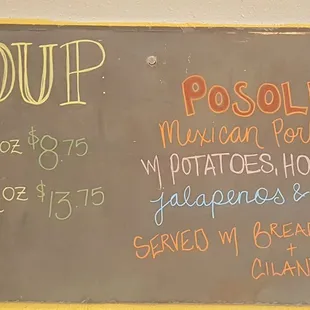 OUP
OZ $8.75
OZ $13.75
POSOL
Mexican Por
W/ POTATOES, HO
jalapeños &
SERVED W/ BREA
+
CILAN